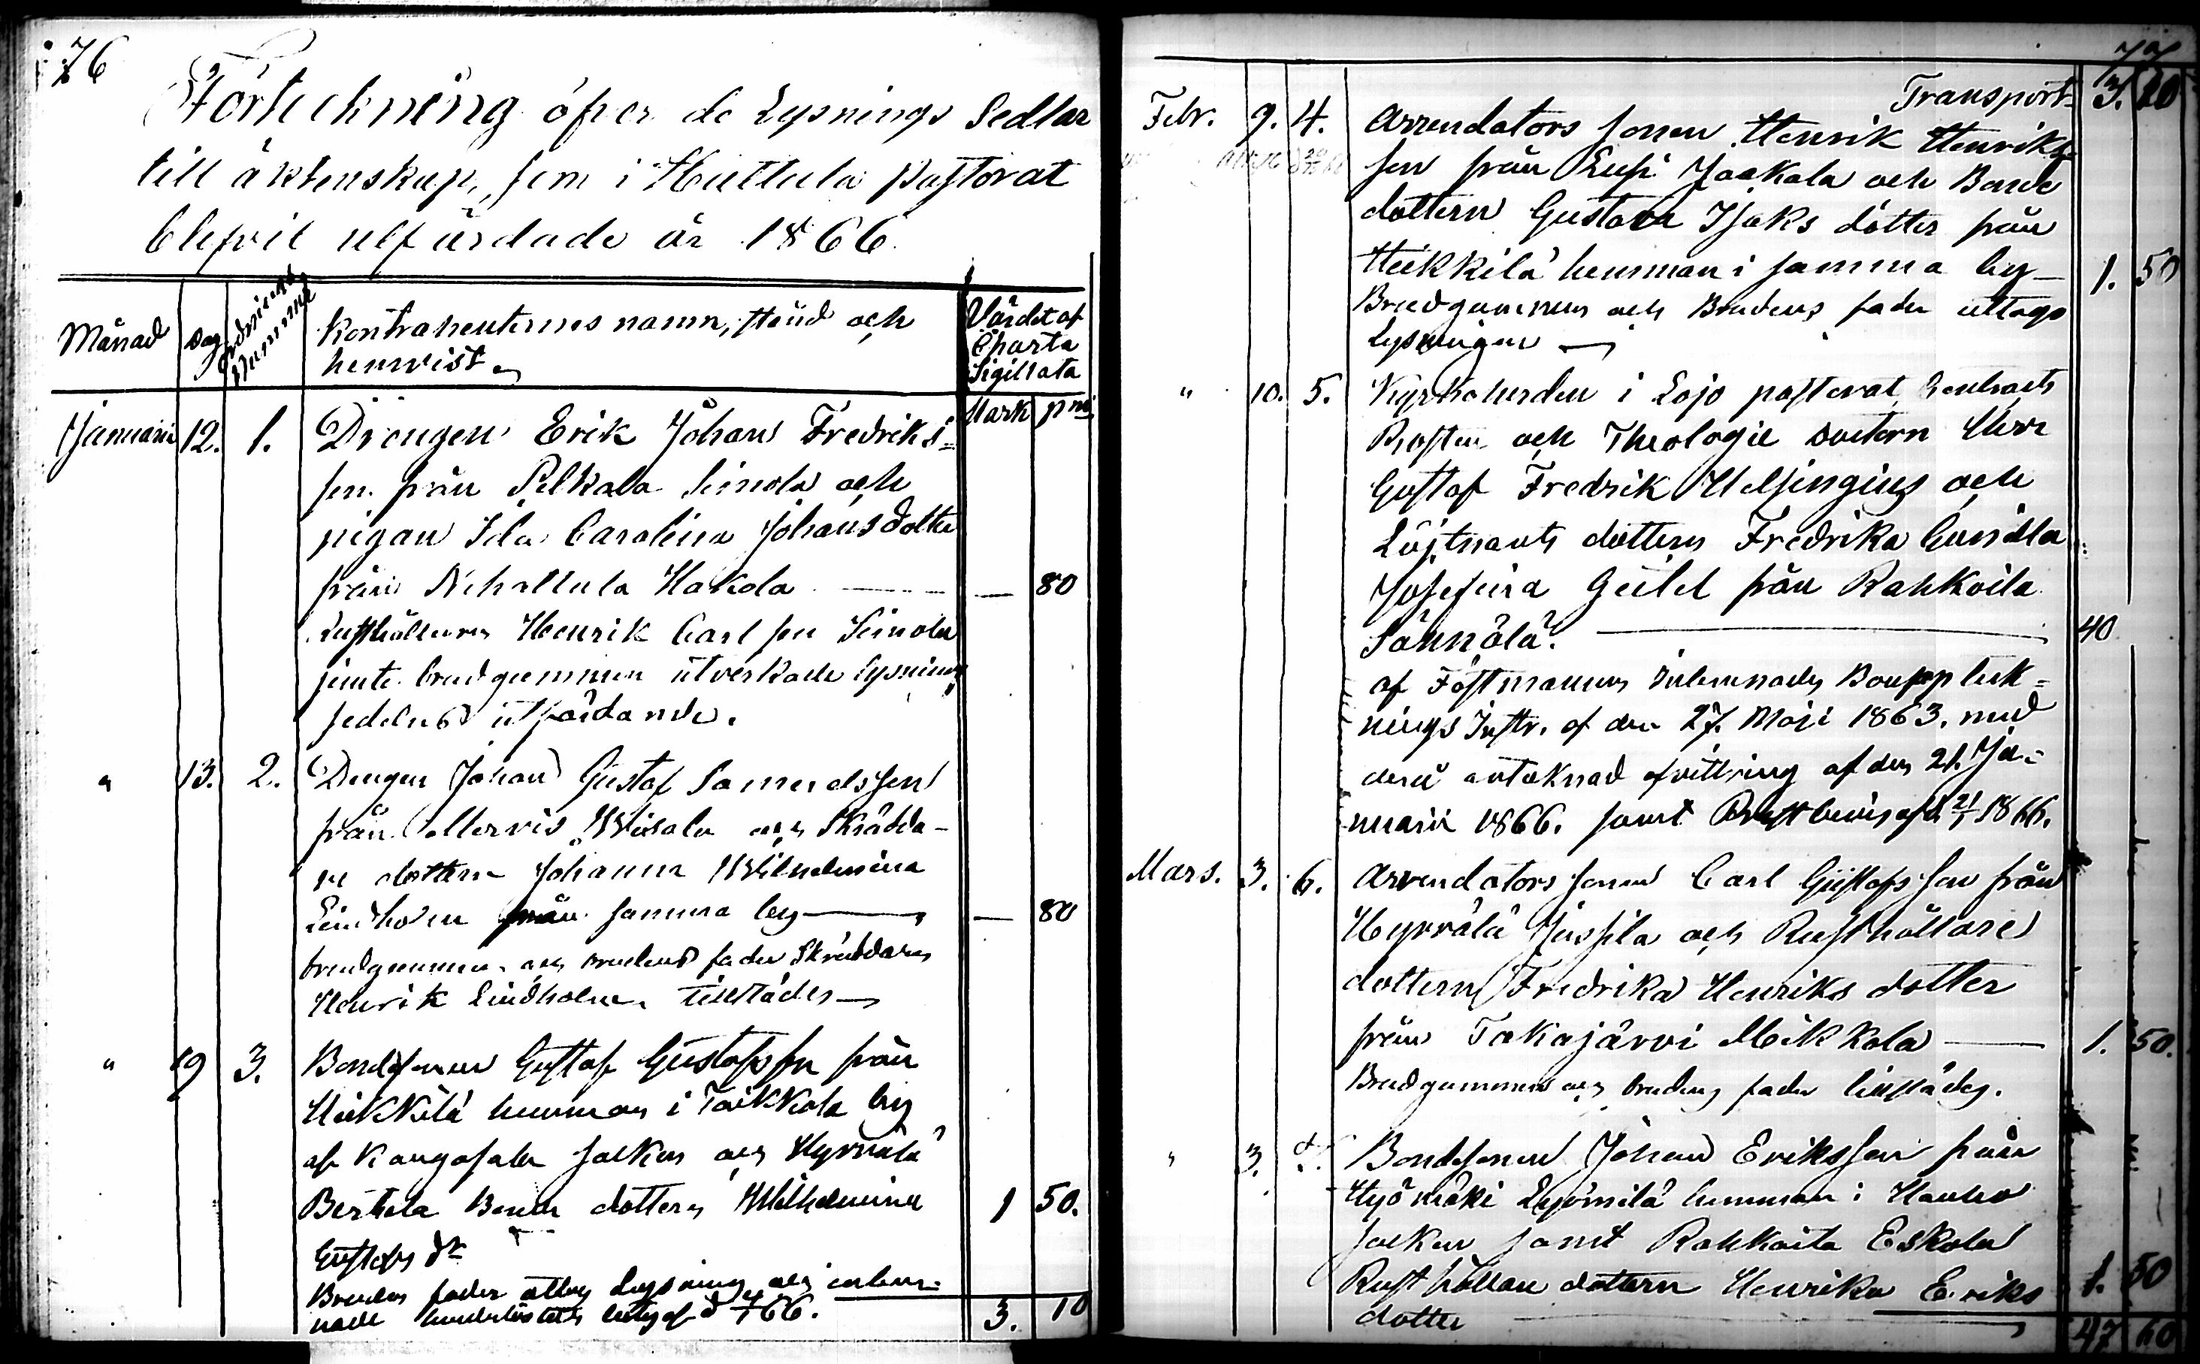 76
Förteckning öfver de Lysnings Sedlar
till äktenskap, som i Hattula pastorat
blefvit utfärdade år 1866.
Månad Dag Ordnings Nummer Kontrahenternes namn, stånd och hemvist Värdet af Charta Sigillata
Mark pni
Januari 12. 1. Drengen Erik Johan Fredriks=
son från Pelkola Simola och
pigan Ida Carolina Johansdotter
från Nihattula Hakola — 80
Rusthållaren Henrik Carlsson Simola
jemte brudgummen utverkade lysnings
sedelns utfärdande.
" 13. 2. Drengen Johan Gustaf Samuelsson
från Mervis Wisala och Skrädda-
re dottern Johanna Wilhelmina
Lindholm från samma by — 80
brudgummen och brudens fader Skräddaren
Henrik Lindholm tillstädes
" 19 3. Bondesonen Gustaf Gustafsson från
Heikkilä hemman i Taikkola by
af Kangasala socken och Hyrvälä
Bertola Bonde dottern Wilhelmina 1 50.
Gustafs dr
Brudens fader uttog Lysning och inlem-
nade hinderlöshets betyg af d 66.
3. 10
77
Transport 3. 10
Febr. 9. 4. Arrendators sonen Henrik Henriks
son från Jaakola och Bonde
dottern Gustava Isaks dotter från
Heikkilä hemman i samma by — 1. 50
Brudgummen och Brudens fader uttogo
Lysningen
" 10. 5. Kyrkoherden i Lojo pastorat, Contracts
Prosten och Theologie doctorn Herr
Gustaf Fredrik Helsingius och
Löjtnants dottern Fredrika Gunilla
Josefina Geitel från Rahkoila
Sännälä. — 40
af Fästmannen inlemnades Boupptek=
nings Instr. af den 27. Maji 1863. med
derå antecknad afvittring af den 21. Ja=
nuari 1866. samt Prestbevis af d. 21/1 1866.
Mars. 3. 6. Arrendators sonen Carl Gustafsson från
Hyrvälä Jussila och Rusthållare
dottern Fredrika Henriks dotter
från Takajärvi Mikkola — 1. 50.
Brudgummen och brudens fader tillstädes.
" 3. 7. Bondesonen Johan Eriksson från
hemman i Hauho
socken samt Rahkoila Eskola
Rusthållare dottern Henrika Eriks 1. 50
dotter —
47 60